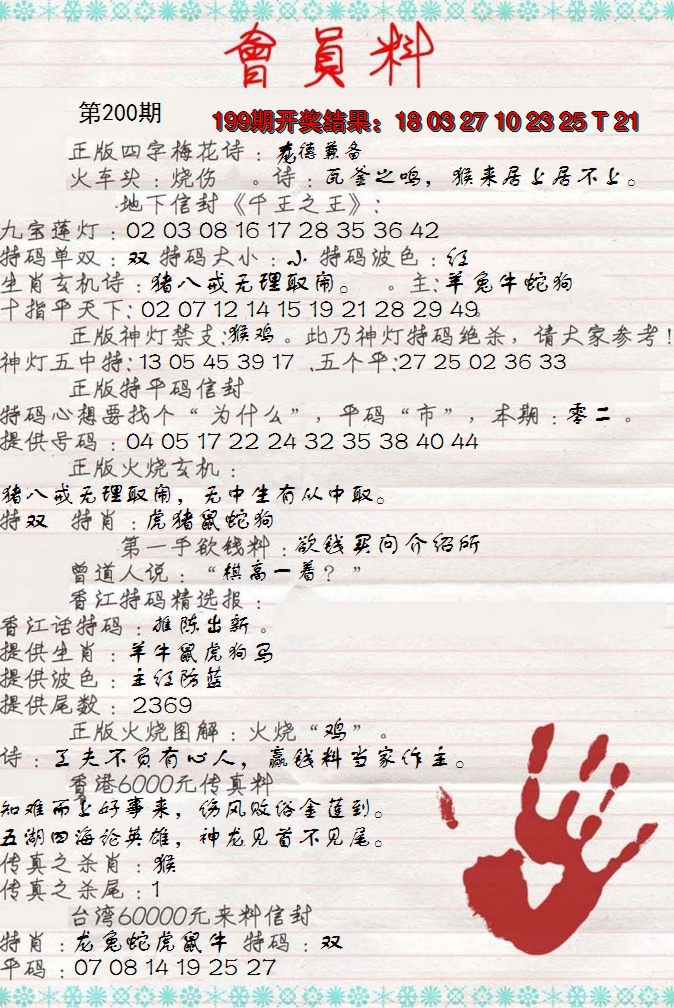 會員料
第200期
199期开奖结果：18 03 27 10 23 25 T 21
正版四字梅花诗：龙德兼备
火车头：烧伤 。诗：瓦釜之鸣，猴来居上居不上。
地下信封《千王之王》：
九宝莲灯：02 03 08 16 17 28 35 36 42
特码单双：双 特码大小：小 特码波色：红
生肖玄机诗：猪八戒无理取闹。 。主：羊兔牛蛇狗
十指平天下：02 07 12 14 15 19 21 28 29 49
正版神灯禁支：猴鸡。此乃神灯特码绝杀，请大家参考！
神灯五中特：13 05 45 39 17 、五个平：27 25 02 36 33
正版特平码信封
特码心想要找个“为什么”，平码“市”，本期：零二。
提供号码：04 05 17 22 24 32 35 38 40 44
正版火烧玄机：
猪八戒无理取闹，无中生有从中取。
特双 特肖：虎猪鼠蛇狗
第一手欲钱料：欲钱买问介绍所
曾道人说：“棋高一着？”
香江特码精选报：
香江话特码：推陈出新。
提供生肖：羊牛鼠虎狗马
提供波色：主红防蓝
提供尾数：2369
正版火烧图解：火烧“鸡”。
诗：工夫不负有心人，赢钱料当家作主。
香港6000元传真料
知难而上好事来，伤风败俗金莲到。
五湖四海论英雄，神龙见首不见尾。
传真之杀肖：猴
传真之杀尾：1
台湾60000元来料信封
特肖：龙兔蛇虎鼠牛 特码：双
平码：07 08 14 19 25 27